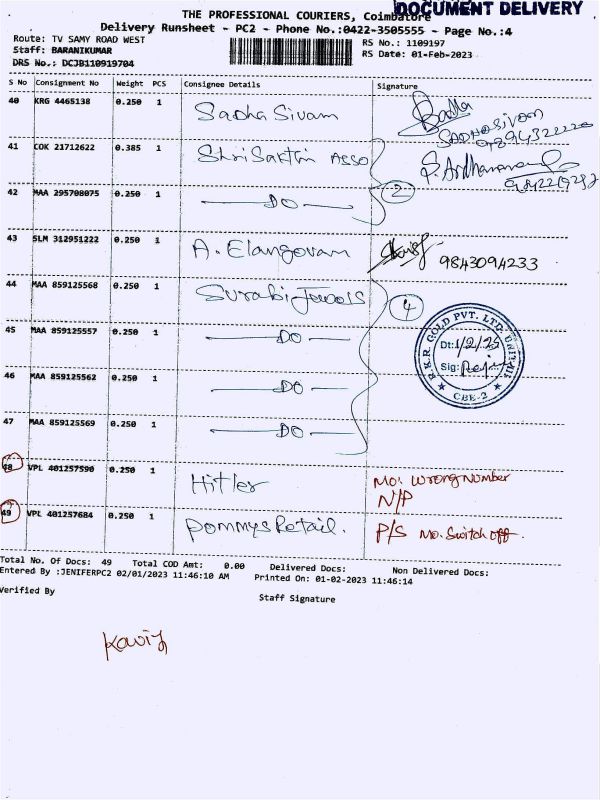 DOCUMENT DELIVERY
THE PROFESSIONAL COURIERS, Coimbatore
Delivery Runsheet - PC2 - Phone No.:0422-3505555 - Page No.:4
Route: TV SAMY ROAD WEST
RS No.: 1109197
Staff: BARANIKUMAR
RS Date: 01-Feb-2023
DRS No.: DCJB110919704
S No Consignment No Weight PCS Consignee Details Signature
40 KRG 4465138 0.250 1 Sadha Sivam
SADHASIVAM
41 COK 21712622 0.385 1 Shri Sakthi ASSO
42 MAA 295708075 0.250 1 DO 2
43 SLM 312951222 0.250 1 A. Elangovan 9843094233
44 MAA 859125568 0.250 1 Surabi Jewels 4
45 MAA 859125557 0.250 1 DO
46 MAA 859125562 0.250 1 DO
47 MAA 859125569 0.250 1 DO
R.K.R. GOLD PVT. LTD. UNIT-III
Dt: 1/2/23
Sig:
CBE-2
48 VPL 401257590 0.250 1 Hitler Mo: Wrong Number
N/P
49 VPL 401257684 0.250 1 Pommys Retail. P/S Mo. Switch off.
Total No. Of Docs: 49 Total COD Amt: 0.00 Delivered Docs: Non Delivered Docs:
Entered By :JENIFERPC2 02/01/2023 11:46:10 AM Printed On: 01-02-2023 11:46:14
Verified By
Staff Signature